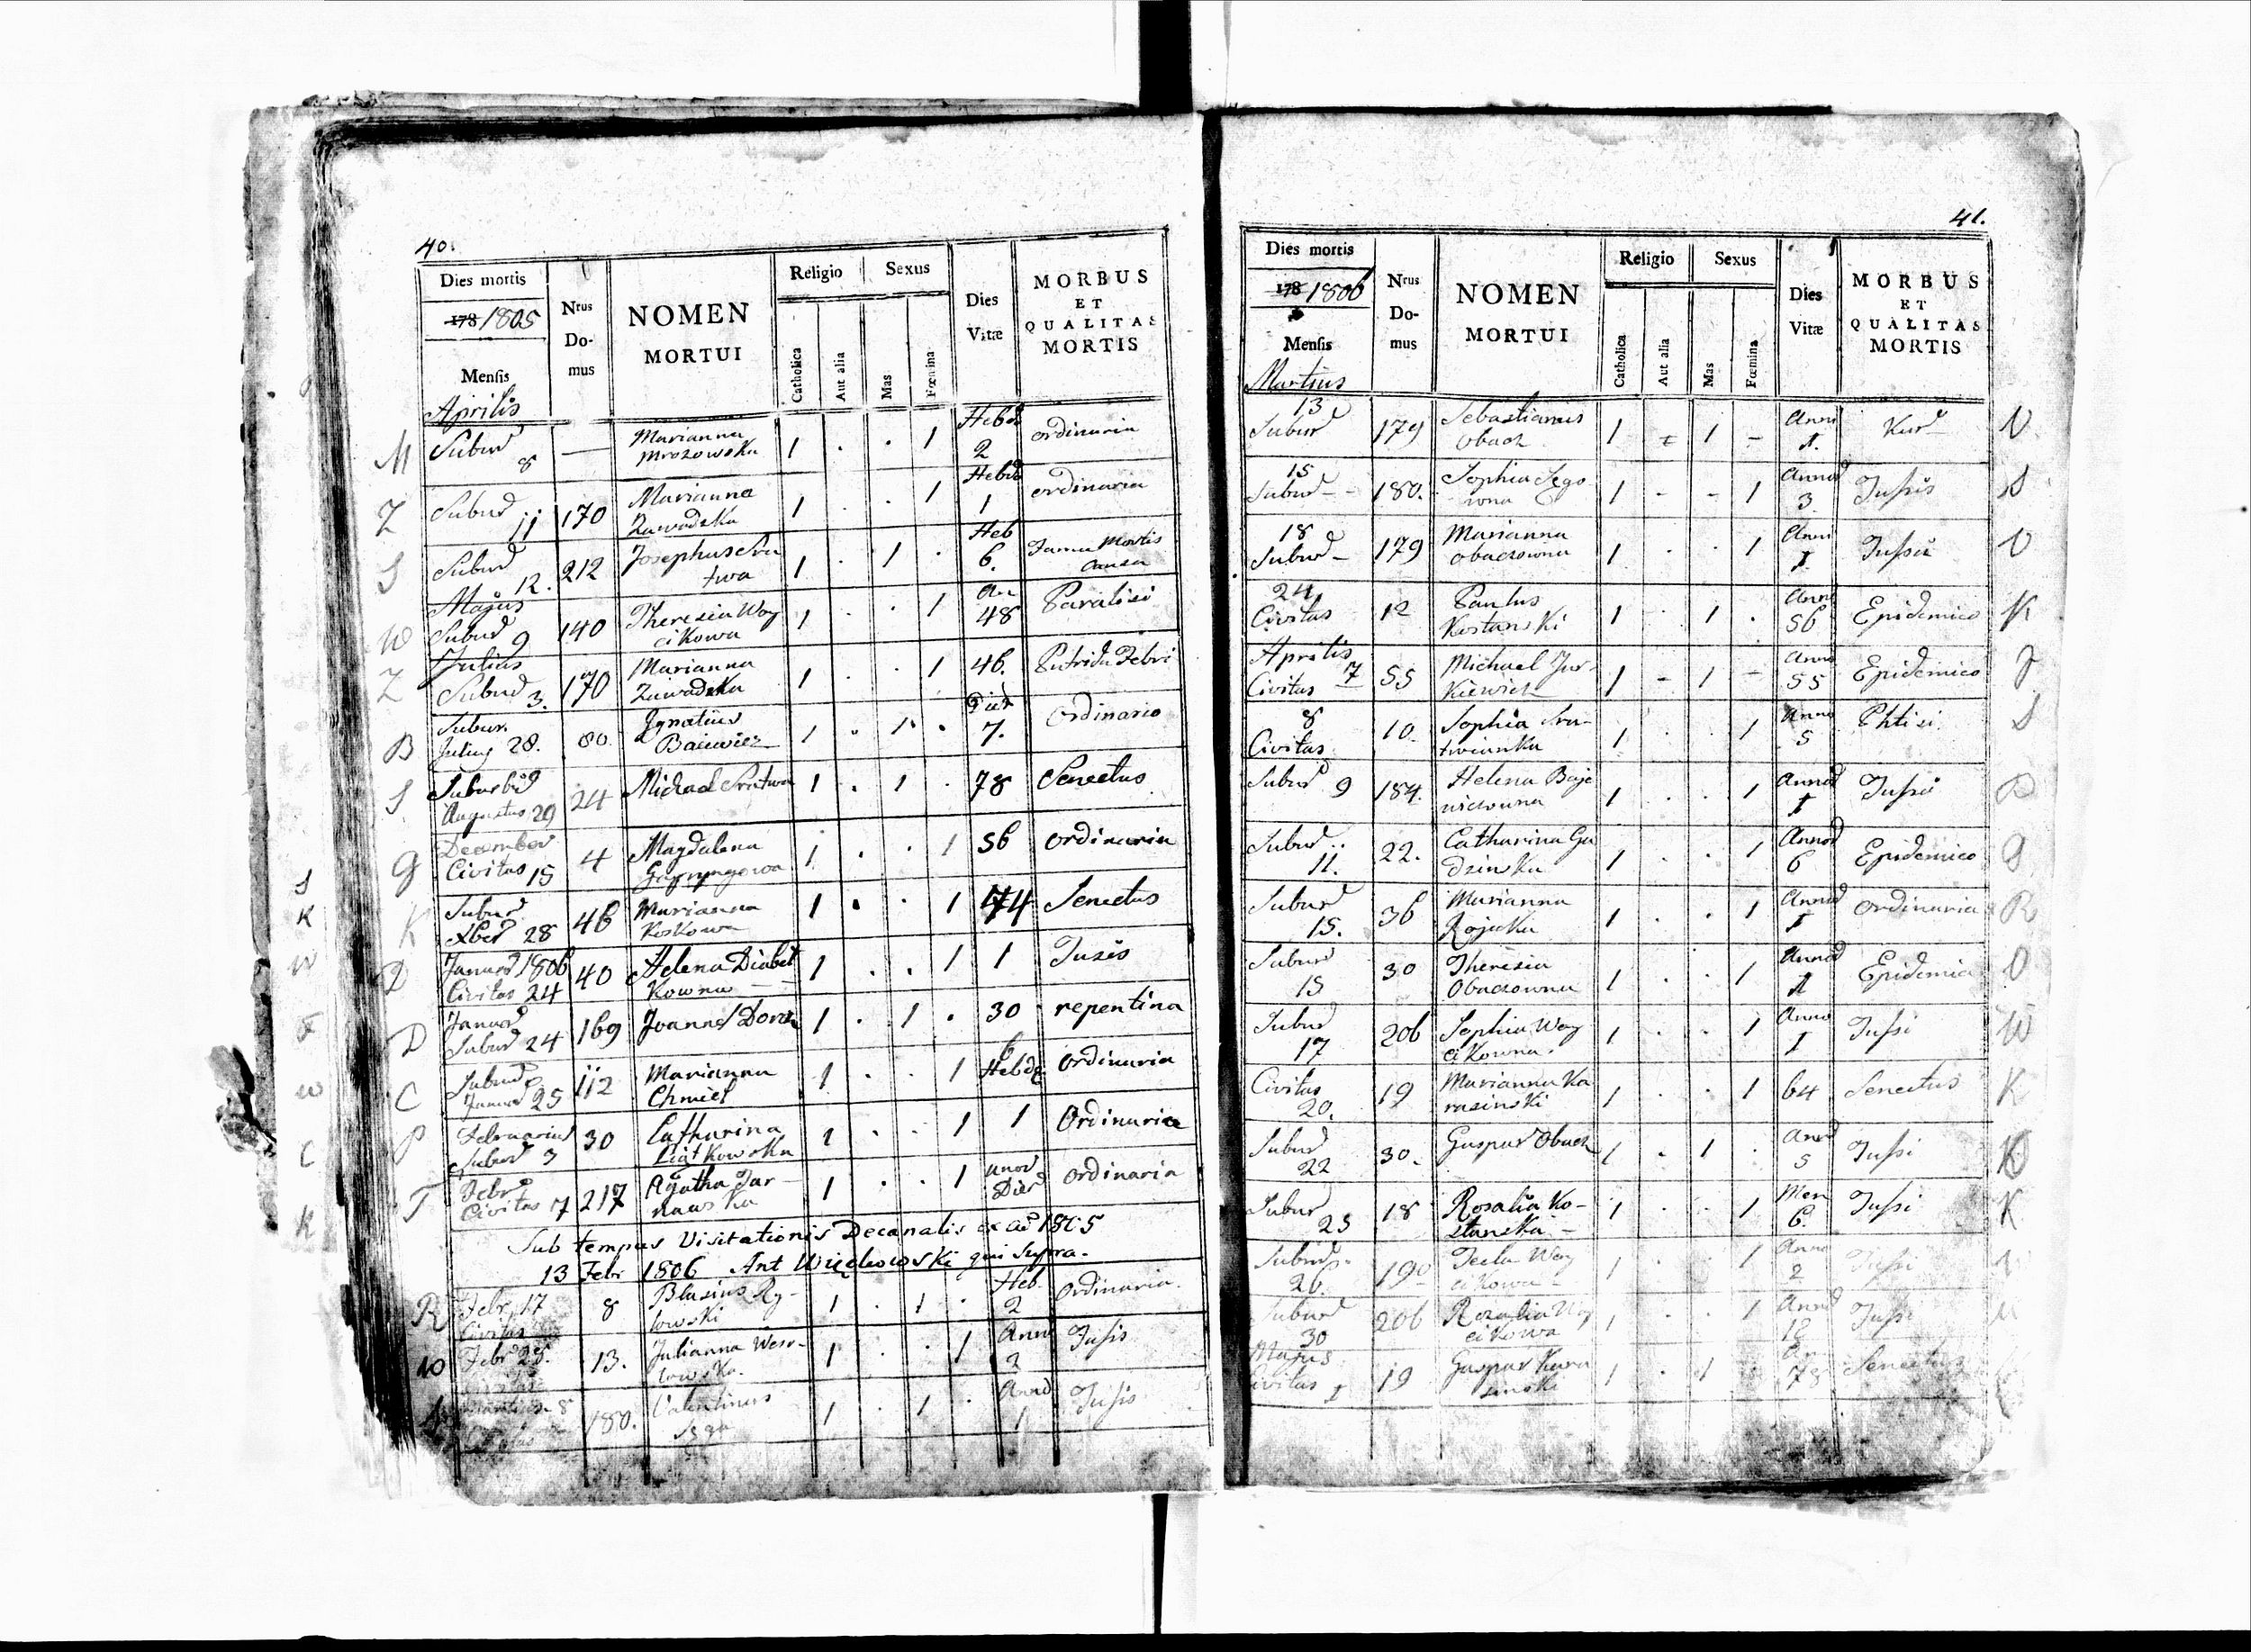 40.
Dies mortis
178 1805
Mensis
Aprilis
Nrus Domus
NOMEN MORTUI
Religio
Catholica
Aut alia
Sexus
Mas
Fœmina
Dies Vitæ
MORBUS ET QUALITAS MORTIS
M Subur 8 — Marianna Mrozowska 1 . . 1 Hebd 2 ordinaria
Z Subur 11 170 Marianna Zawadzka 1 . . 1 Hebd 1 ordinaria
S Subur 12. 212 Josephus Sratwa 1 . 1 . Heb 6.
W Majus Subur 9 140 Theresia Woycikowa 1 . . 1 An 48 Paralisi
Z Julius Subur 3. 170 Marianna Zawadzka 1 . . 1 46. Putrida Febri
B Subur. Julius 28. 80 Ignatius Baiewicz 1 . 1 . Dier 7. Ordinario
S Suburbid Augustus 29 24 Michael Sratwa 1 . 1 . 78 Senectus
G December Civitas 15 4 Magdalena 1 . . 1 56 ordinaria
K Subur Xber 28 46 Marianna Koskowa 1 . . 1 74 Senectus
D Januar 1806 Civitas 24 40 Helena Diabelkowna 1 . . 1 1 Tusis
D Januar Subur 24 169 Joannes 1 . 1 . 30 repentina
C Subur Januar 25 112 Marianna Chmiel 1 . . 1 6 Hebd ordinaria
P Februarius Subur 3 30 Catharina Piątkowska 1 . . 1 1 Ordinaria
T Febr Civitas 7 217 Agatha Tarnawska 1 . . 1 Dier ordinaria
Sub tempus Visitationis Decanalis ex ao 1805
13 Febr 1806 Ant Więckowski qui supra.
R Febr 17 Civitas 8 Blasius Rylowski 1 . 1 . Heb. 2 ordinaria.
W Febr 25. 13. Julianna 1 . . 1 Ann 2 Tusis
Martius 8 180. Valentinus Sega 1 . 1 . Anno 1 Tusis
41.
Dies mortis
178 1806
Mensis
Martius
Nrus Domus
NOMEN MORTUI
Religio
Catholica
Aut alia
Sexus
Mas
Fœmina
Dies Vitæ
MORBUS ET QUALITAS MORTIS
13 Subur 179 Sebastianus Obacz 1 - 1 - Anni 1.
15 Subur 180. Sophia Segowna 1 - - 1 Annor 3 Tussis
18 Subur 179 Marianna Obaczowna 1 . . 1 Anni 1 Tussis
24 Civitas 12 Paulus Kostanski 1 . 1 . Anno 56 Epidemico K
Aprilis 7 Civitas 55 Michael Jurkiewicz 1 - 1 - Anno 55 Epidemico J
8 Civitas 10 Sophia Sratwianka 1 . . 1 Anno 5 Phtisi S
Subur 9 184. Helena Bajewiczowna 1 . . 1 Annor 1 Tussi
Subur 11. 22. Catharina Gudzinska 1 . . 1 Annor 6 Epidemico G
Subur 15. 36 Marianna Rojska 1 . . 1 Annor 1 ordinaria R
Subur 15 30 Theresia Obaczowna 1 . . 1 Annor 1 Epidemia O
Subur 17 206 Sophia Woycikowna. 1 . . 1 Anno 1 Tussi W
Civitas 20. 19 Marianna Karasinski 1 . . 1 64 Senectus K
Subur 22 30. Gaspar Obacz 1 . 1 . Anor 5 Tussi
Subur 25 18 Rosalia Kostanska 1 . . 1 Men 6. Tussi K
Subur 26. 190 Tecla Woycikowa 1 . . 1 Anno 2 Tussi
Subur 30 206 Rozalia Woycikowa 1 . . 1 Annor 12 Tussi
Majus Civitas 1 19 Gaspar Karasinski 1 . 1 . An 78 Senectus